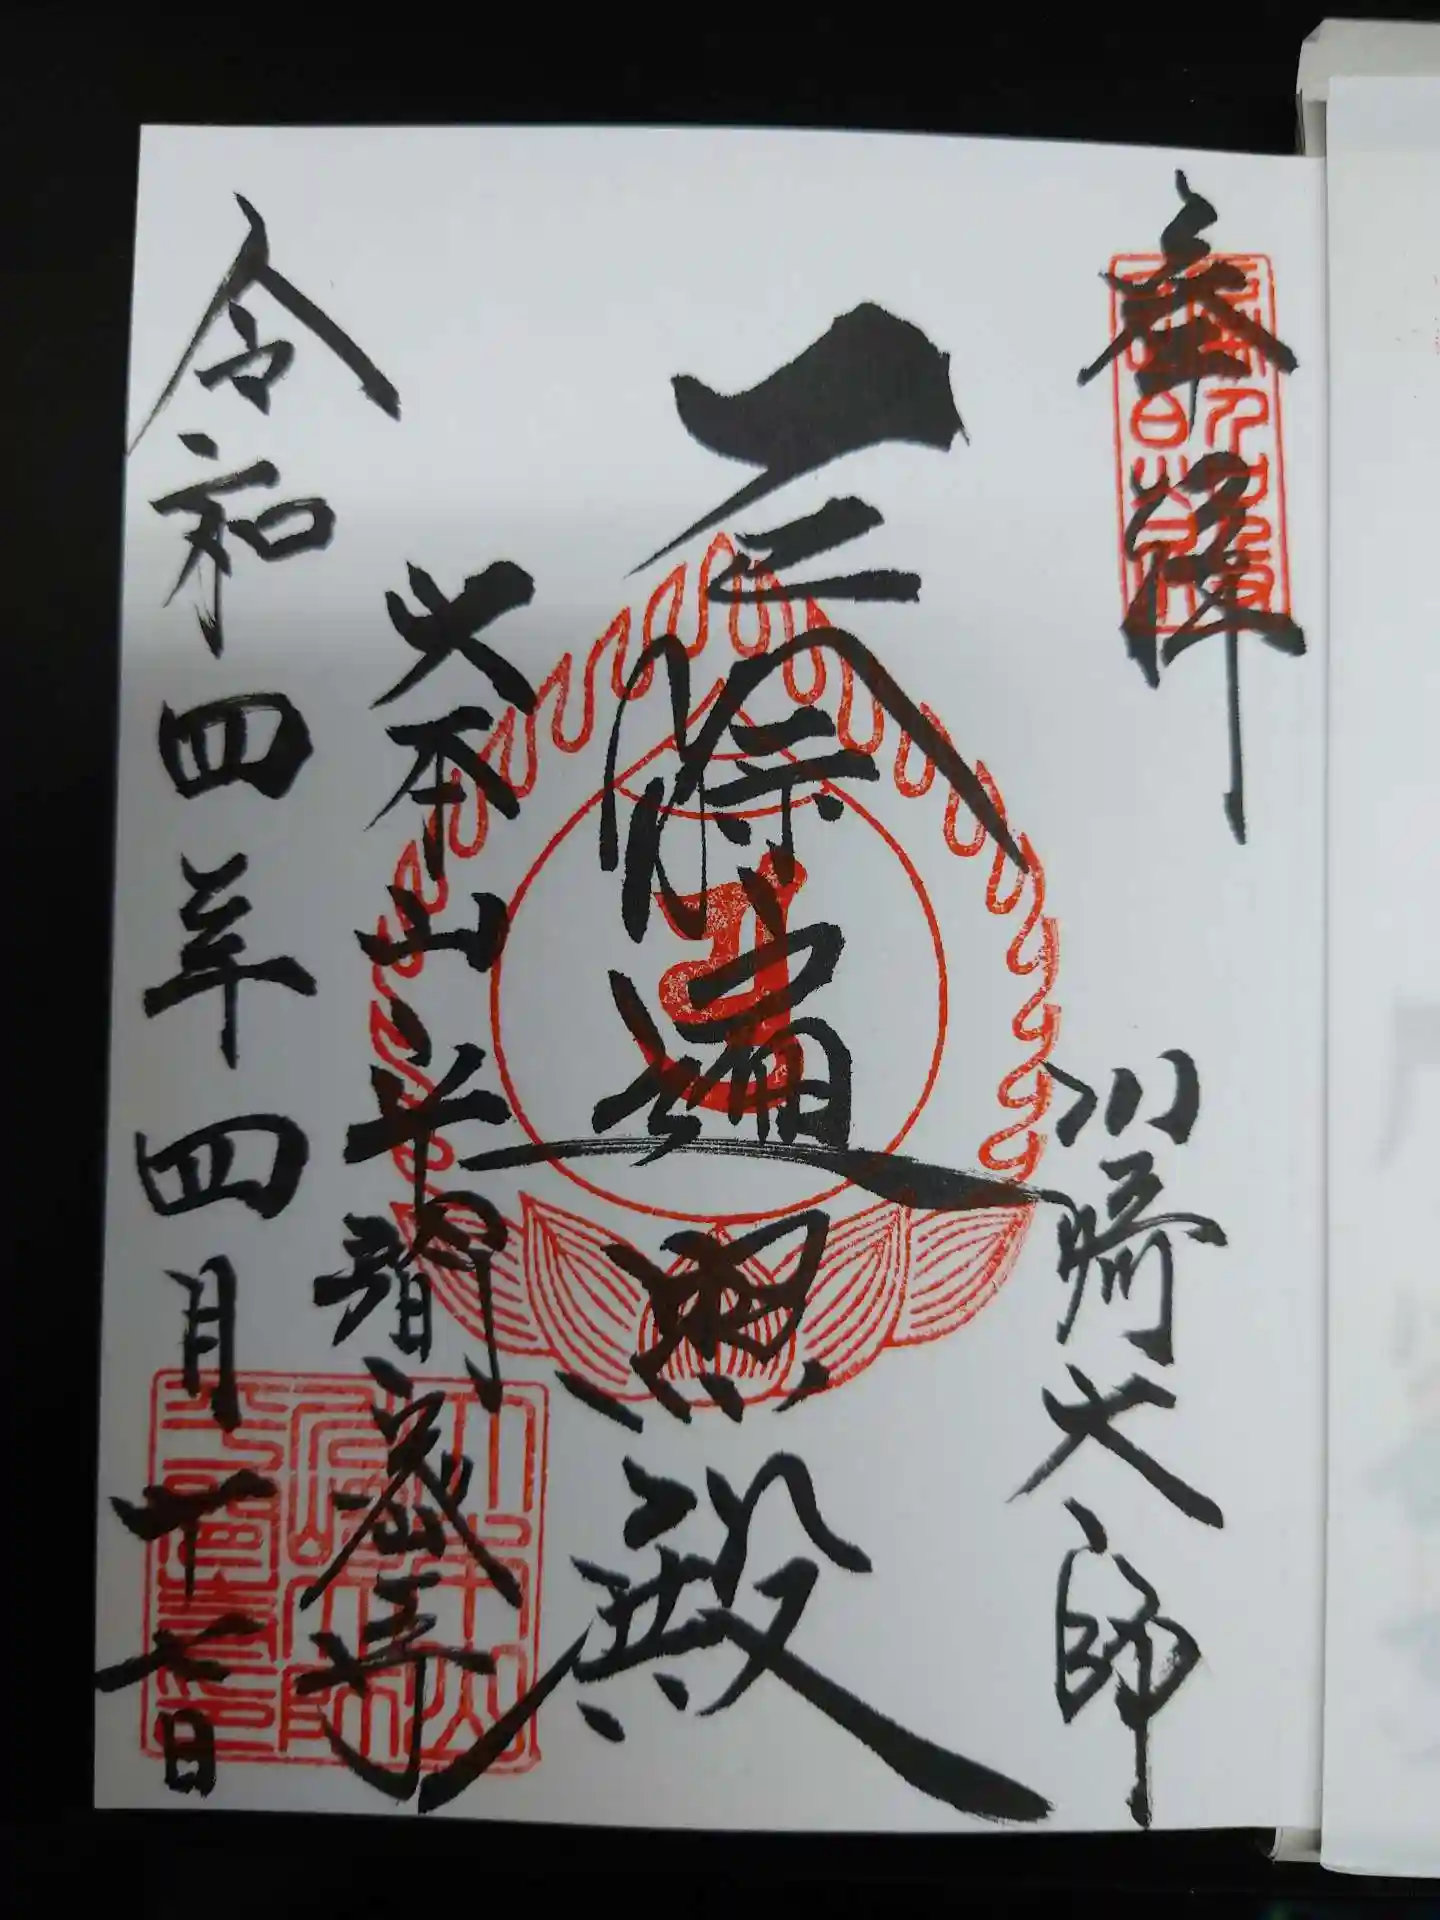 奉拝
川崎大師
厄除遍照殿
大本山平間密寺
令和四年四月十七日